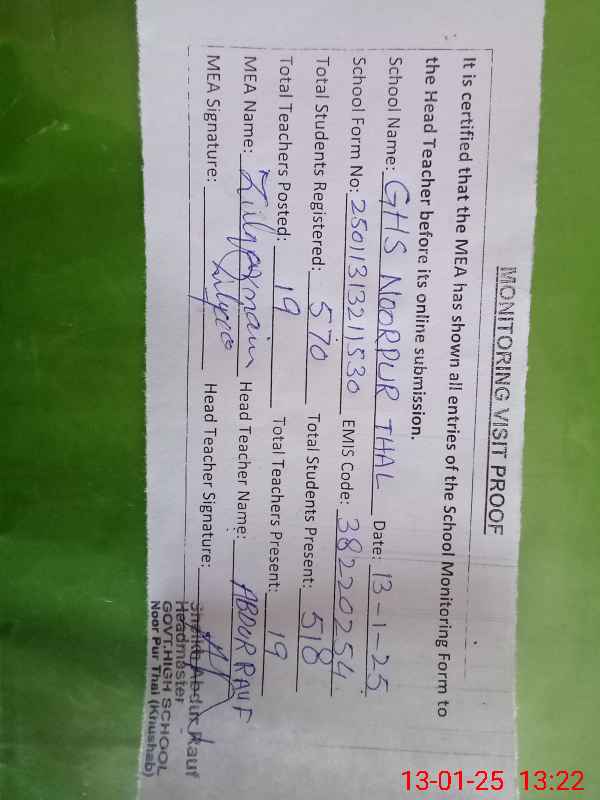 MONITORING VISIT PROOF
It is certified that the MEA has shown all entries of the School Monitoring Form to
the Head Teacher before its online submission.
School Name: GHS NOORPUR THAL Date: 13-1-25
School Form No: 2501131321530 EMIS Code: 38220254
Total Students Registered: 570 Total Students Present: 518
Total Teachers Posted: 19 Total Teachers Present: 19
MEA Name: Head Teacher Name: ABDUR RAUF
MEA Signature: Head Teacher Signature:
Abdur Rauf
Headmaster
GOVT.HIGH SCHOOL
Noor Pur Thal (Khushab)
13-01-25 13:22